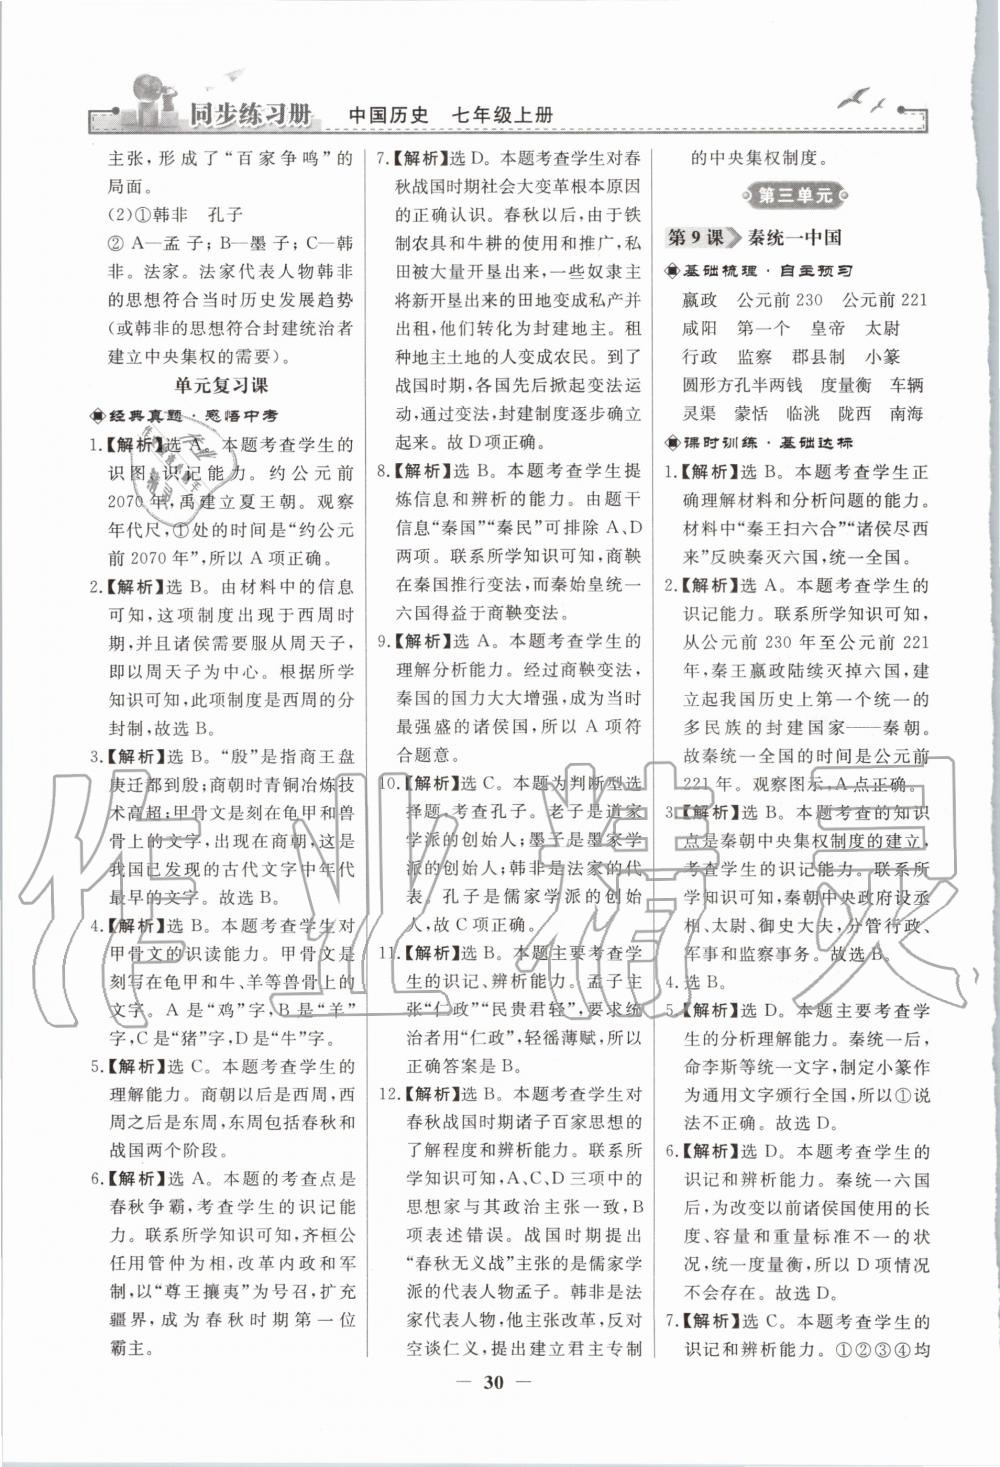 同步练习册 中国历史 七年级上册
主张,形成了“百家争鸣”的
局面。
(2)①韩非 孔子
②A—孟子;B—墨子;C—韩
非。法家。法家代表人物韩非
的思想符合当时历史发展趋势
(或韩非的思想符合封建统治者
建立中央集权的需要)。
单元复习课
经典真题·感悟中考
1.【解析】选A。本题考查学生的
识图、识记能力。约公元前
2070年,禹建立夏王朝。观察
年代尺,①处的时间是“约公元
前2070年”,所以A项正确。
2.【解析】选B。由材料中的信息
可知,这项制度出现于西周时
期,并且诸侯需要服从周天子,
即以周天子为中心。根据所学
知识可知,此项制度是西周的分
封制,故选B。
3.【解析】选B。“殷”是指商王盘
庚迁都到殷;商朝时青铜冶炼技
术高超;甲骨文是刻在龟甲和兽
骨上的文字,出现在商朝,这是
我国已发现的古代文字中年代
最早的文字。故选B。
4.【解析】选B。本题考查学生对
甲骨文的识读能力。甲骨文是
刻写在龟甲和牛、羊等兽骨上的
文字。A是“鸡”字,B是“羊”
字,C是“猪”字,D是“牛”字。
5.【解析】选C。本题考查学生的
理解能力。商朝以后是西周,西
周之后是东周,东周包括春秋和
战国两个阶段。
6.【解析】选A。本题的考查点是
春秋争霸,考查学生的识记能
力。联系所学知识可知:齐桓公
任用管仲为相,改革内政和军
事,以“尊王攘夷”为号召,扩充
疆界,成为春秋时期第一位
霸主。
7.【解析】选D。本题考查学生对春
秋战国时期社会大变革根本原因
的正确认识。春秋以后,由于铁
制农具和牛耕的使用和推广,私
田被大量开垦出来,一些奴隶主
把新开垦出来的田地变成私产并
出租,他们转化为封建地主。租
种地主土地的人变成农民。到了
战国时期,各国掀起变法改革运
动,使封建制度逐步确立
起来。故D项正确。
8.【解析】选B。本题考查学生提
炼信息和辨析的能力。由题干
信息“秦国”“秦民”可排除A、D
两项。联系所学知识可知,商鞅
在秦国推行变法,而秦始皇统一
六国得益于商鞅变法。
9.【解析】选A。本题考查学生的
理解分析能力。经过商鞅变法,
秦国的国力大大增强,成为当时
最强盛的诸侯国,所以A项符
合题意。
10.【解析】选C。本题为判断型选
择题,考查孔子。老子是道家
学派的创始人;墨子是墨家学
派的创始人;韩非是法家的代
表。孔子是儒家学派的创始
人,故C项正确。
11.【解析】选B。本题主要考查学
生的识记、辨析能力。孟子主
张“仁政”“民贵君轻”,要求统
治者用“仁政”,轻徭薄赋,所以
正确答案是B。
12.【解析】选B。本题考查学生对
春秋战国时期诸子百家思想的
了解和辨析能力。联系所学
知识可知,A、C、D三项中的
思想家与其政治主张一致,B
项表述错误。战国时期提出
“春秋无义战”主张的是儒家学
派的代表人物孟子。韩非是法
家代表人物,他主张改革,反对
空谈仁义,提出建立君主专制
的中央集权制度。
第三单元
第9课 秦统一中国
基础梳理·自主预习
嬴政 公元前230 公元前221
咸阳 第一个 皇帝 太尉
行政 监察 郡县制 小篆
圆形方孔半两钱 度量衡 车辆
灵渠 蒙恬 临洮 陇西 南海
课时训练·基础达标
1.【解析】选B。本题考查学生正
确理解材料和分析问题的能力。
材料中“秦王扫六合”“诸侯尽西
来”反映秦灭六国,统一全国。
2.【解析】选A。本题考查学生的
识记能力。联系所学知识可知,
从公元前230年至公元前221
年,秦王嬴政陆续灭掉六国,建
立起我国历史上第一个统一的
多民族的封建国家——秦朝。
故秦统一全国的时间是公元前
221年。观察图示,A点正确。
3.【解析】选B。本题考查的知识
点是秦朝中央集权制度的建立,
考查学生的识记能力。联系所
学知识可知,秦朝中央政府设丞
相、太尉、御史大夫,分管行政、
军事和监察事务。故选B。
4.选B。
5.【解析】选D。本题主要考查学
生的分析理解能力。秦统一后,
命李斯等人统一文字,制定小篆为
通用文字颁行全国,所以①说
法不正确。故选D。
6.【解析】选D。本题考查学生的
识记和辨析能力。秦统一六国
后,为改变以前诸侯国使用的长
度、容量和重量标准不一的状
况,统一度量衡,所以D项情况
不会存在。
7.【解析】选C。本题考查学生的
识记和辨析能力。①②③④均
30
作业精灵